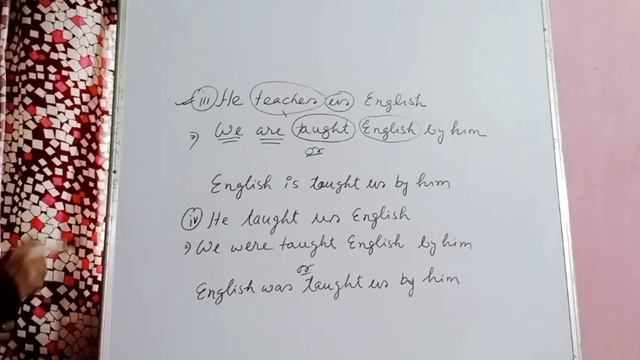 (iii) He teachers us English
⇒ We are taught English by him
or
English is taught us by him
(iv) He taught us English
⇒ We were taught English by him
or
English was taught us by him